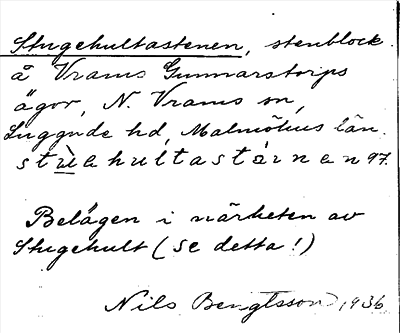 Stugehultastenen, stenblock
å Vrams Gunnarstorps
ägor, N. Vrams sn,
Luggude hd, Malmöhus län.
stùahultastárnan 97.
Belägen i närheten av
Stugehult (se detta!)
Nils Bengtsson, 1936